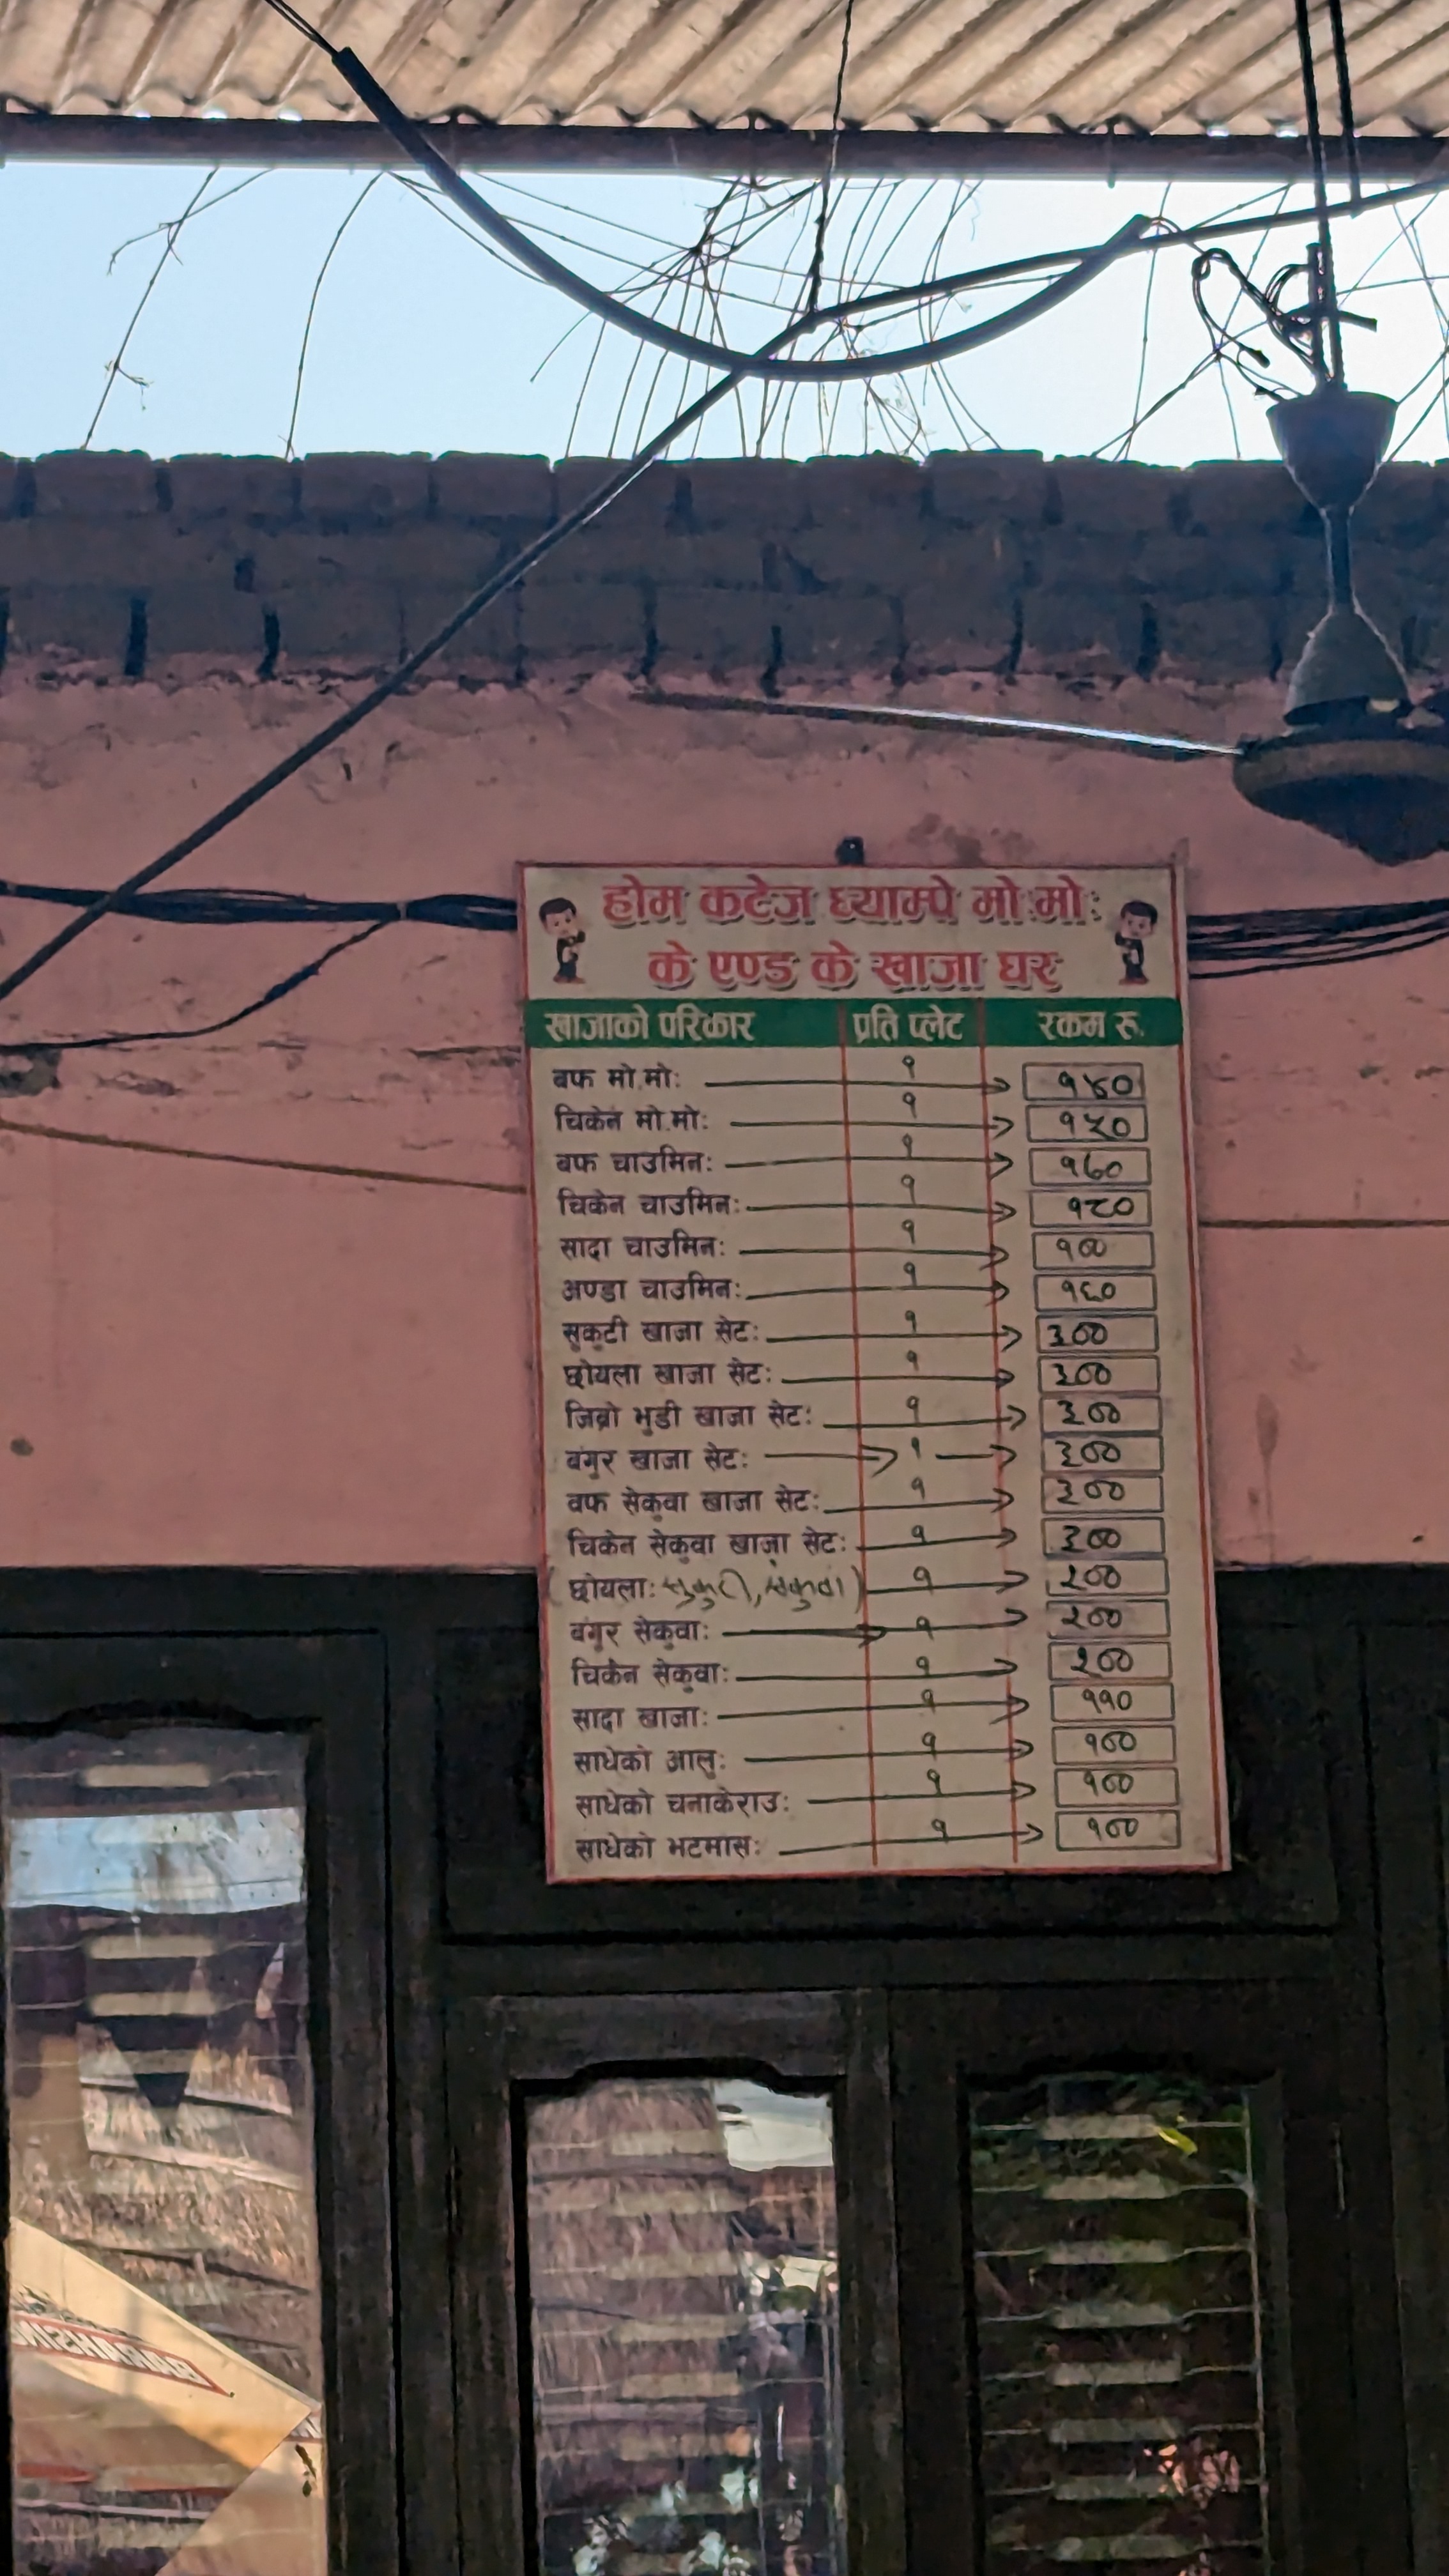 होम कटेज घ्याम्पे मो.मो:
के एण्ड के खाजा घर
खाजाको परिकार प्रति प्लेट रकम रु.
बफ मो.मो: १ १४०
चिकेन मो.मो: १ १५०
बफ चाउमिन: १ १६०
चिकेन चाउमिन: १ १८०
सादा चाउमिन: १ १००
अण्डा चाउमिन: १ १६०
सुकुटी खाजा सेट: १ ३००
छोयला खाजा सेट: १ ३००
जिब्रो भुडी खाजा सेट: १ ३००
बंगुर खाजा सेट: १ ३००
बफ सेकुवा खाजा सेट: १ ३००
चिकेन सेकुवा खाजा सेट: १ ३००
(छोयला: सुकुटी, सेकुवा) १ २००
बंगुर सेकुवा: १ २००
चिकेन सेकुवा: १ २००
सादा खाजा: १ ११०
साधेको आलु: १ १००
साधेको चनाकेराउ: १ १००
साधेको भटमास: १ १००